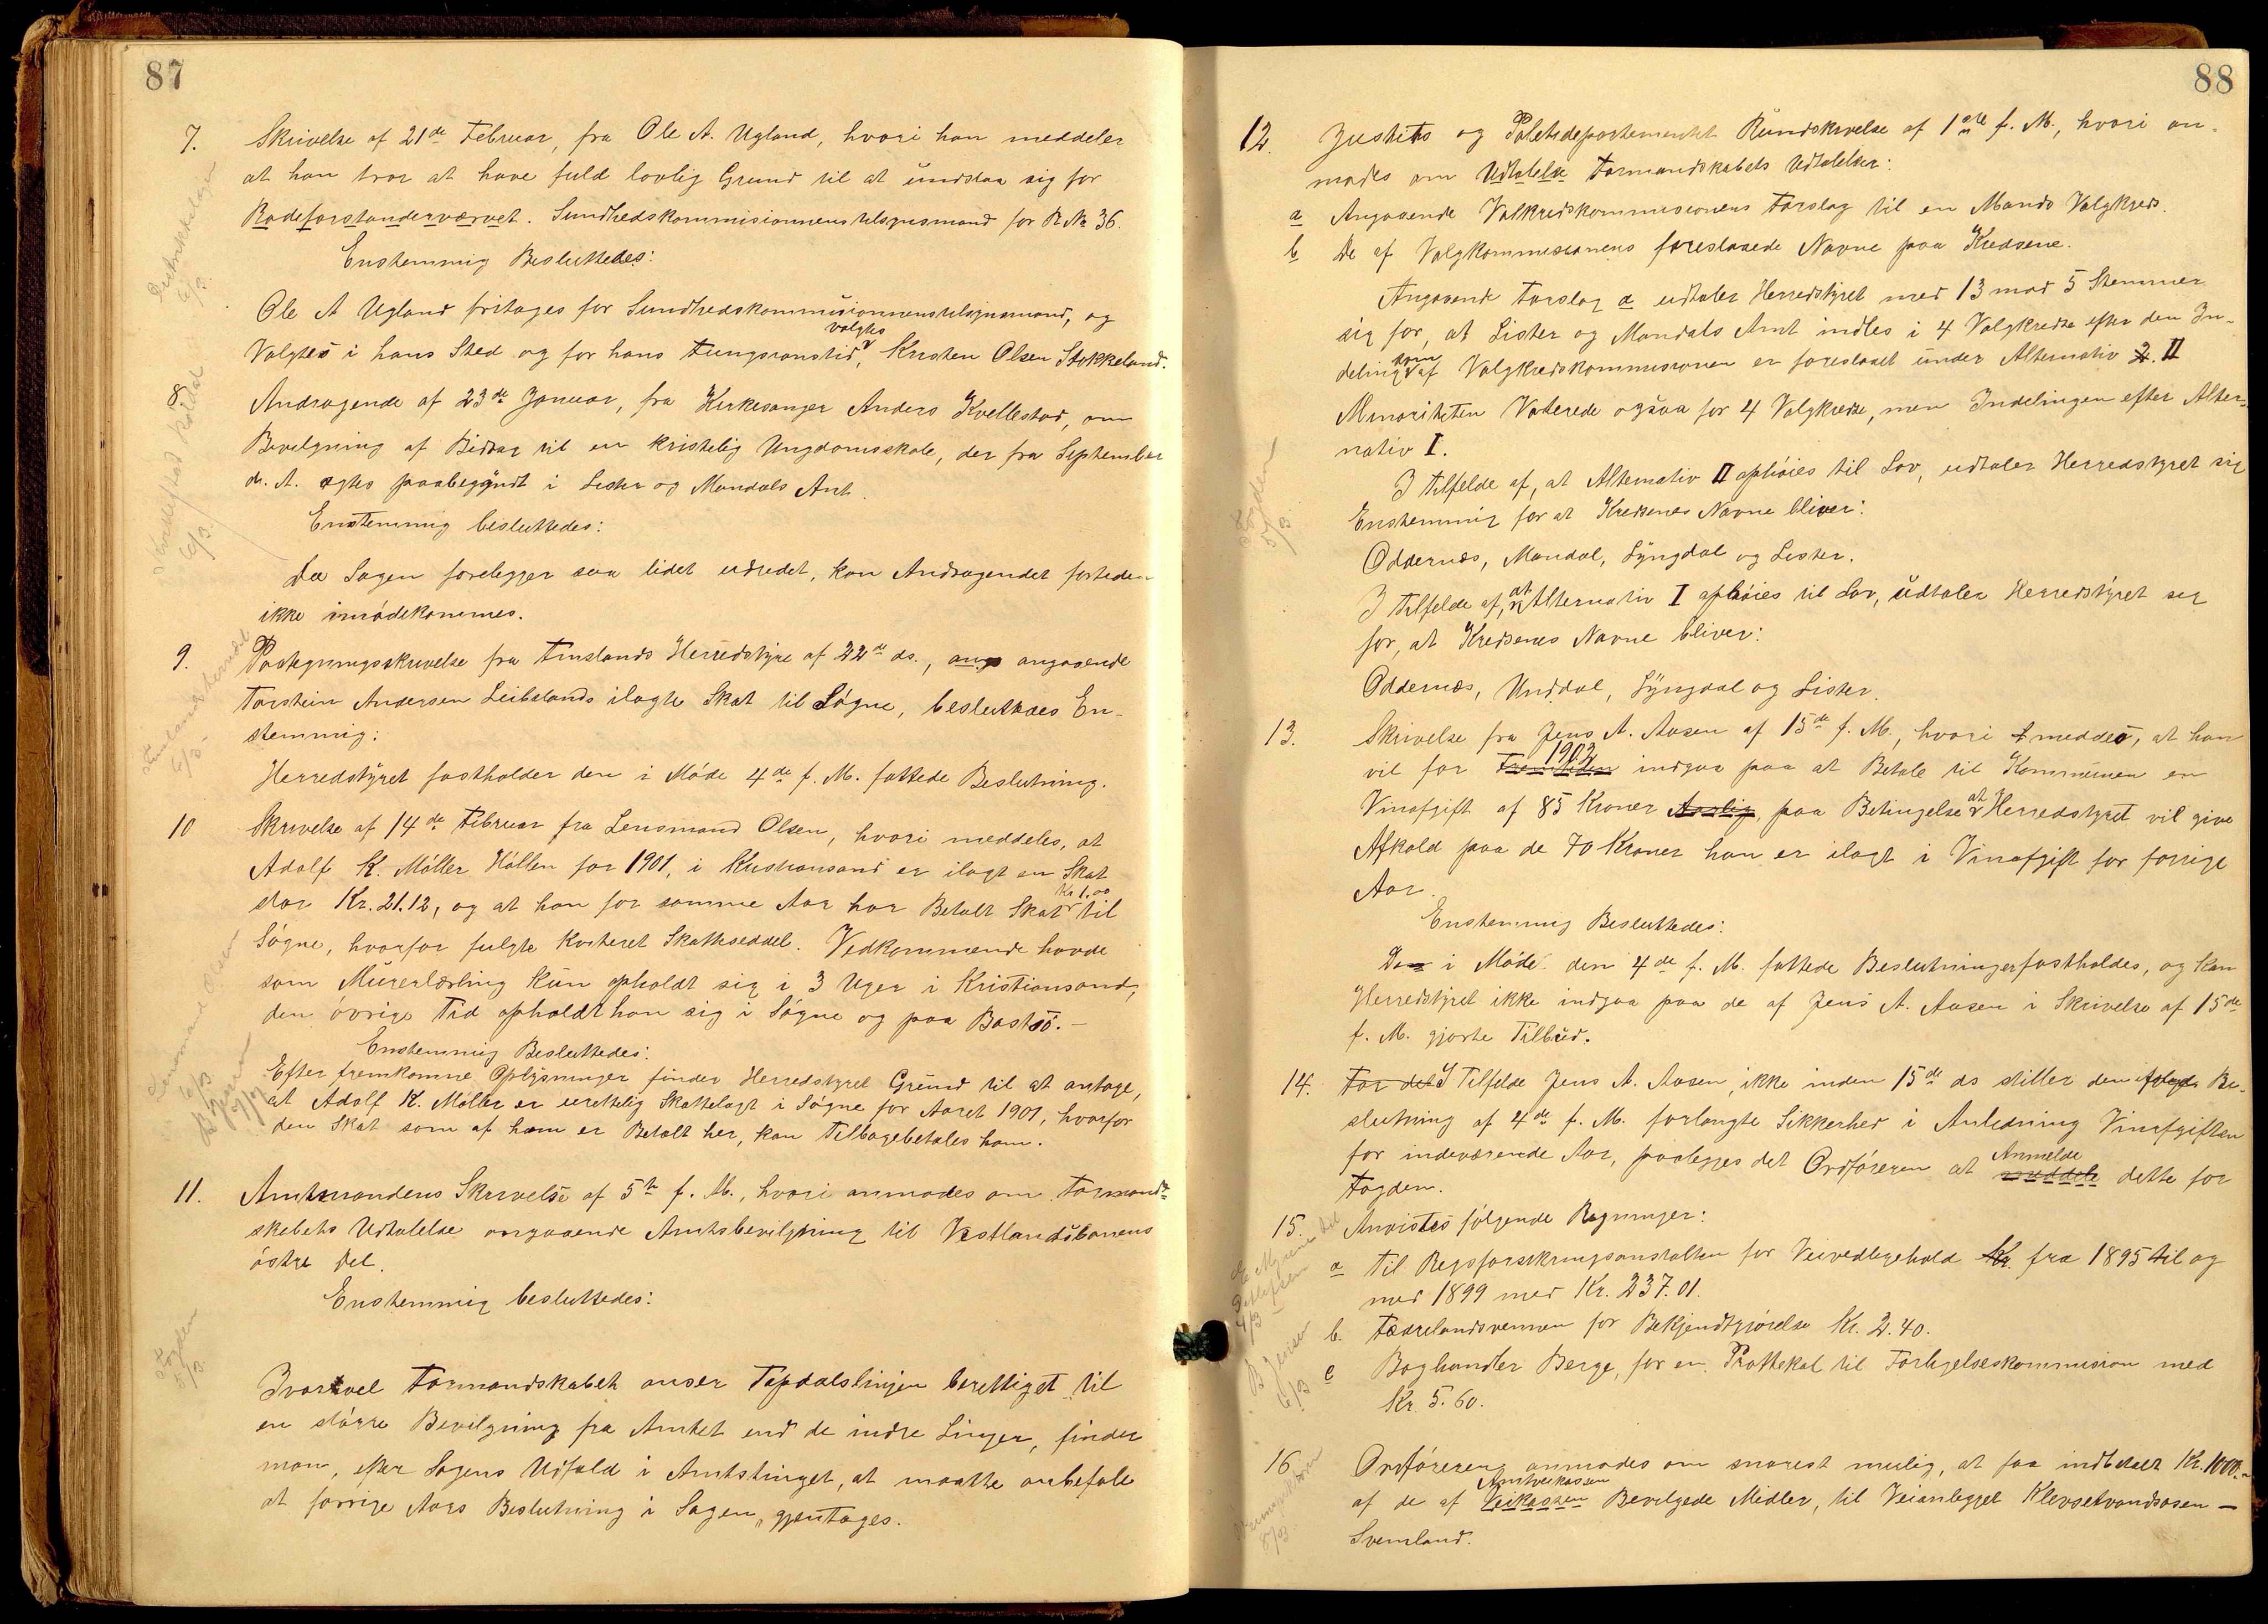 87
7. Skrivelse af 21de Februar, fra Ole A. Ugland, hvori han meddeler
at han tror at have fuld lovlig Grund til at undslaa sig for
Rodeforstanderværvet. Sundhedskommisionnens tilsynsmand for R. No 36.
Enstemmig Besluttedes:
Distriktslægen
6/3.
Ole A Ugland fritages for Sundhedskommisionnenstilsynsmand, og
Valgtes i hans Sted og for hans Fungsionstid, valgtes Kristen Olsen Stokkeland.
8. Andragende af 23de Januar, fra Kirkesanger Anders Kvellestad, om
Bevilgning af Bidrag til en kristelig Ungdomsskole, der fra September
d. A. agtes paabegyndt i Lister og Mandals Amt.
Enstemmig besluttedes:
Kvellestad
6/3.
Da Sagen foreligger saa lidet udredet, kan Andragendet fortiden
ikke imødekommes.
9. Paategningsskrivelse fra Finslands Herredstyre af 22de ds., ang angaaende
Torstein Andersen Leibslands ilagte Skat til Søgne, besluttedes En-
stemmig:
Finsland
6/3
Herredstyret fastholder den i Møde 4de f. M. fattede Beslutning.
10 Skrivelse af 14de Februar fra Lensmand Olsen, hvori meddeles, at
Adolf K. Møller Høllen for 1901, i Kristiansand er ilagt en Skat
stor Kr. 21.12, og at han for samme Aar har Betalt Skat Kr 1.00 til
Søgne, hvorfor fulgte Kviteret Skatteseddel. Vedkommende havde
som Murerlærling kun opholdt sig i 3 Uger i Kristiansand,
den øvrige Tid opholdt han sig i Søgne og paa Bastø.-
Enstemmig Besluttedes:
Lensmand Olsen
6/3
Efter fremkomne Oplysninger finder Herredstyret Grund til at antage,
at Adolf K. Møller er urettelig Skattelagt i Søgne for Aaret 1901, hvorfor
den Skat som af ham er Betalt her, kan Tilbagebetales ham.
11. Amtmandens Skrivelse af 5te f. M., hvori anmodes om Formand-
skabets Udtalelse angaaende Amtsbevilgning til Vestlandsbanens
østre Del.
Enstemmig besluttedes:
Fogden
5/3.
Ivorvel Formandskabet anser Topdalslinjen berettiget til
en større Bevilgning fra Amtet end de indre Linjer, finder
man, efter Sagens Udfald i Amtstinget, at maatte anbefale
at forrige Aars Beslutning i Sagen, gjentages.
88
12. Justits og Politidepartementet Rundskrivelse af 1ste f. M., hvori an-
modes om Udtalelse Formandskabets Udtalelser:
a Angaaende Valkredskommisionens Forslag til en Mands Valgkreds.
b De af Valgkommissionens foreslaaede Navne paa Kredsene.
Angaaende Forslag a udtaler Herredstyret med 13 mod 5 Stemmer
sig for, at Lister og Mandals Amt indles i 4 Valgkredse efter den In-
deling som af Valgkredskommisionen er foreslaaet under Alternativ 2. II
Minoriteten Voterede ogsaa for 4 Valgkredse, men Indelingen efter Alter-
nativ I.
Fogden
5/3.
I tilfelde af, at Alternativ II ophøies til Lov, udtaler Herredstyret sig
Enstemmig for at Kredsenes Navne bliver:
Oddernæs, Mandal, Lyngdal og Lister.
I tilfelde af, at Alternativ I ophøies til Lov, udtaler Herredstyret sig
for, at Kredsenes Navne bliver:
Oddernæs, Undal, Lyngdal og Lister.
13. Skrivelse fra Jens A. Aasen af 15de f. M., hvori meddes, at han
vil for Fremtiden 1902 indgaa paa at Betale til Kommunen en
Vinafgift af 85 Kroner Aarlig, paa Betingelse at Herredstyret vil give
Afkald paa de 70 Kroner han er ilagt i Vinafgift for forrige
Aar.
Enstemmig Besluttedes:
Den i Møde den 4de f. M. fattede Beslutninger fastholdes, og kan
Herredstyret ikke indgaa paa de af Jens A. Aasen i Skrivelse af 15de
f. M. gjorte Tilbud.
14. For det I Tilfelde Jens A. Aasen, ikke inden 15de ds stiller den ifølge Be-
slutning af 4de f. M. forlangte Sikkerhed i Anledning Vinafgiften
for indeværende Aar, paalegges det Ordføreren at meddele Anmelde dette for
Fogden.
15. Anvistes følgende Regninger:
a Til Regsforsikringsanstalten for Veivedligehold Kr. fra 1895 til og
med 1899 med Kr. 237.01.
b. Fædrelandsvennen for Bekjendtgjørelse Kr. 2.40.
c Boghandler Berge, for en Prottekol til Forligelseskommision med
Kr. 5.60.
4/3
B Jensen
6/3
16. Ordføreren anmodes om snarest mulig, at faa indbetalt Kr. 1000.-
af de af Veikassen Amtveikassen Bevilgede Midler, til Veianlegget Klevsetvandsosen -
Svemland.
8/3